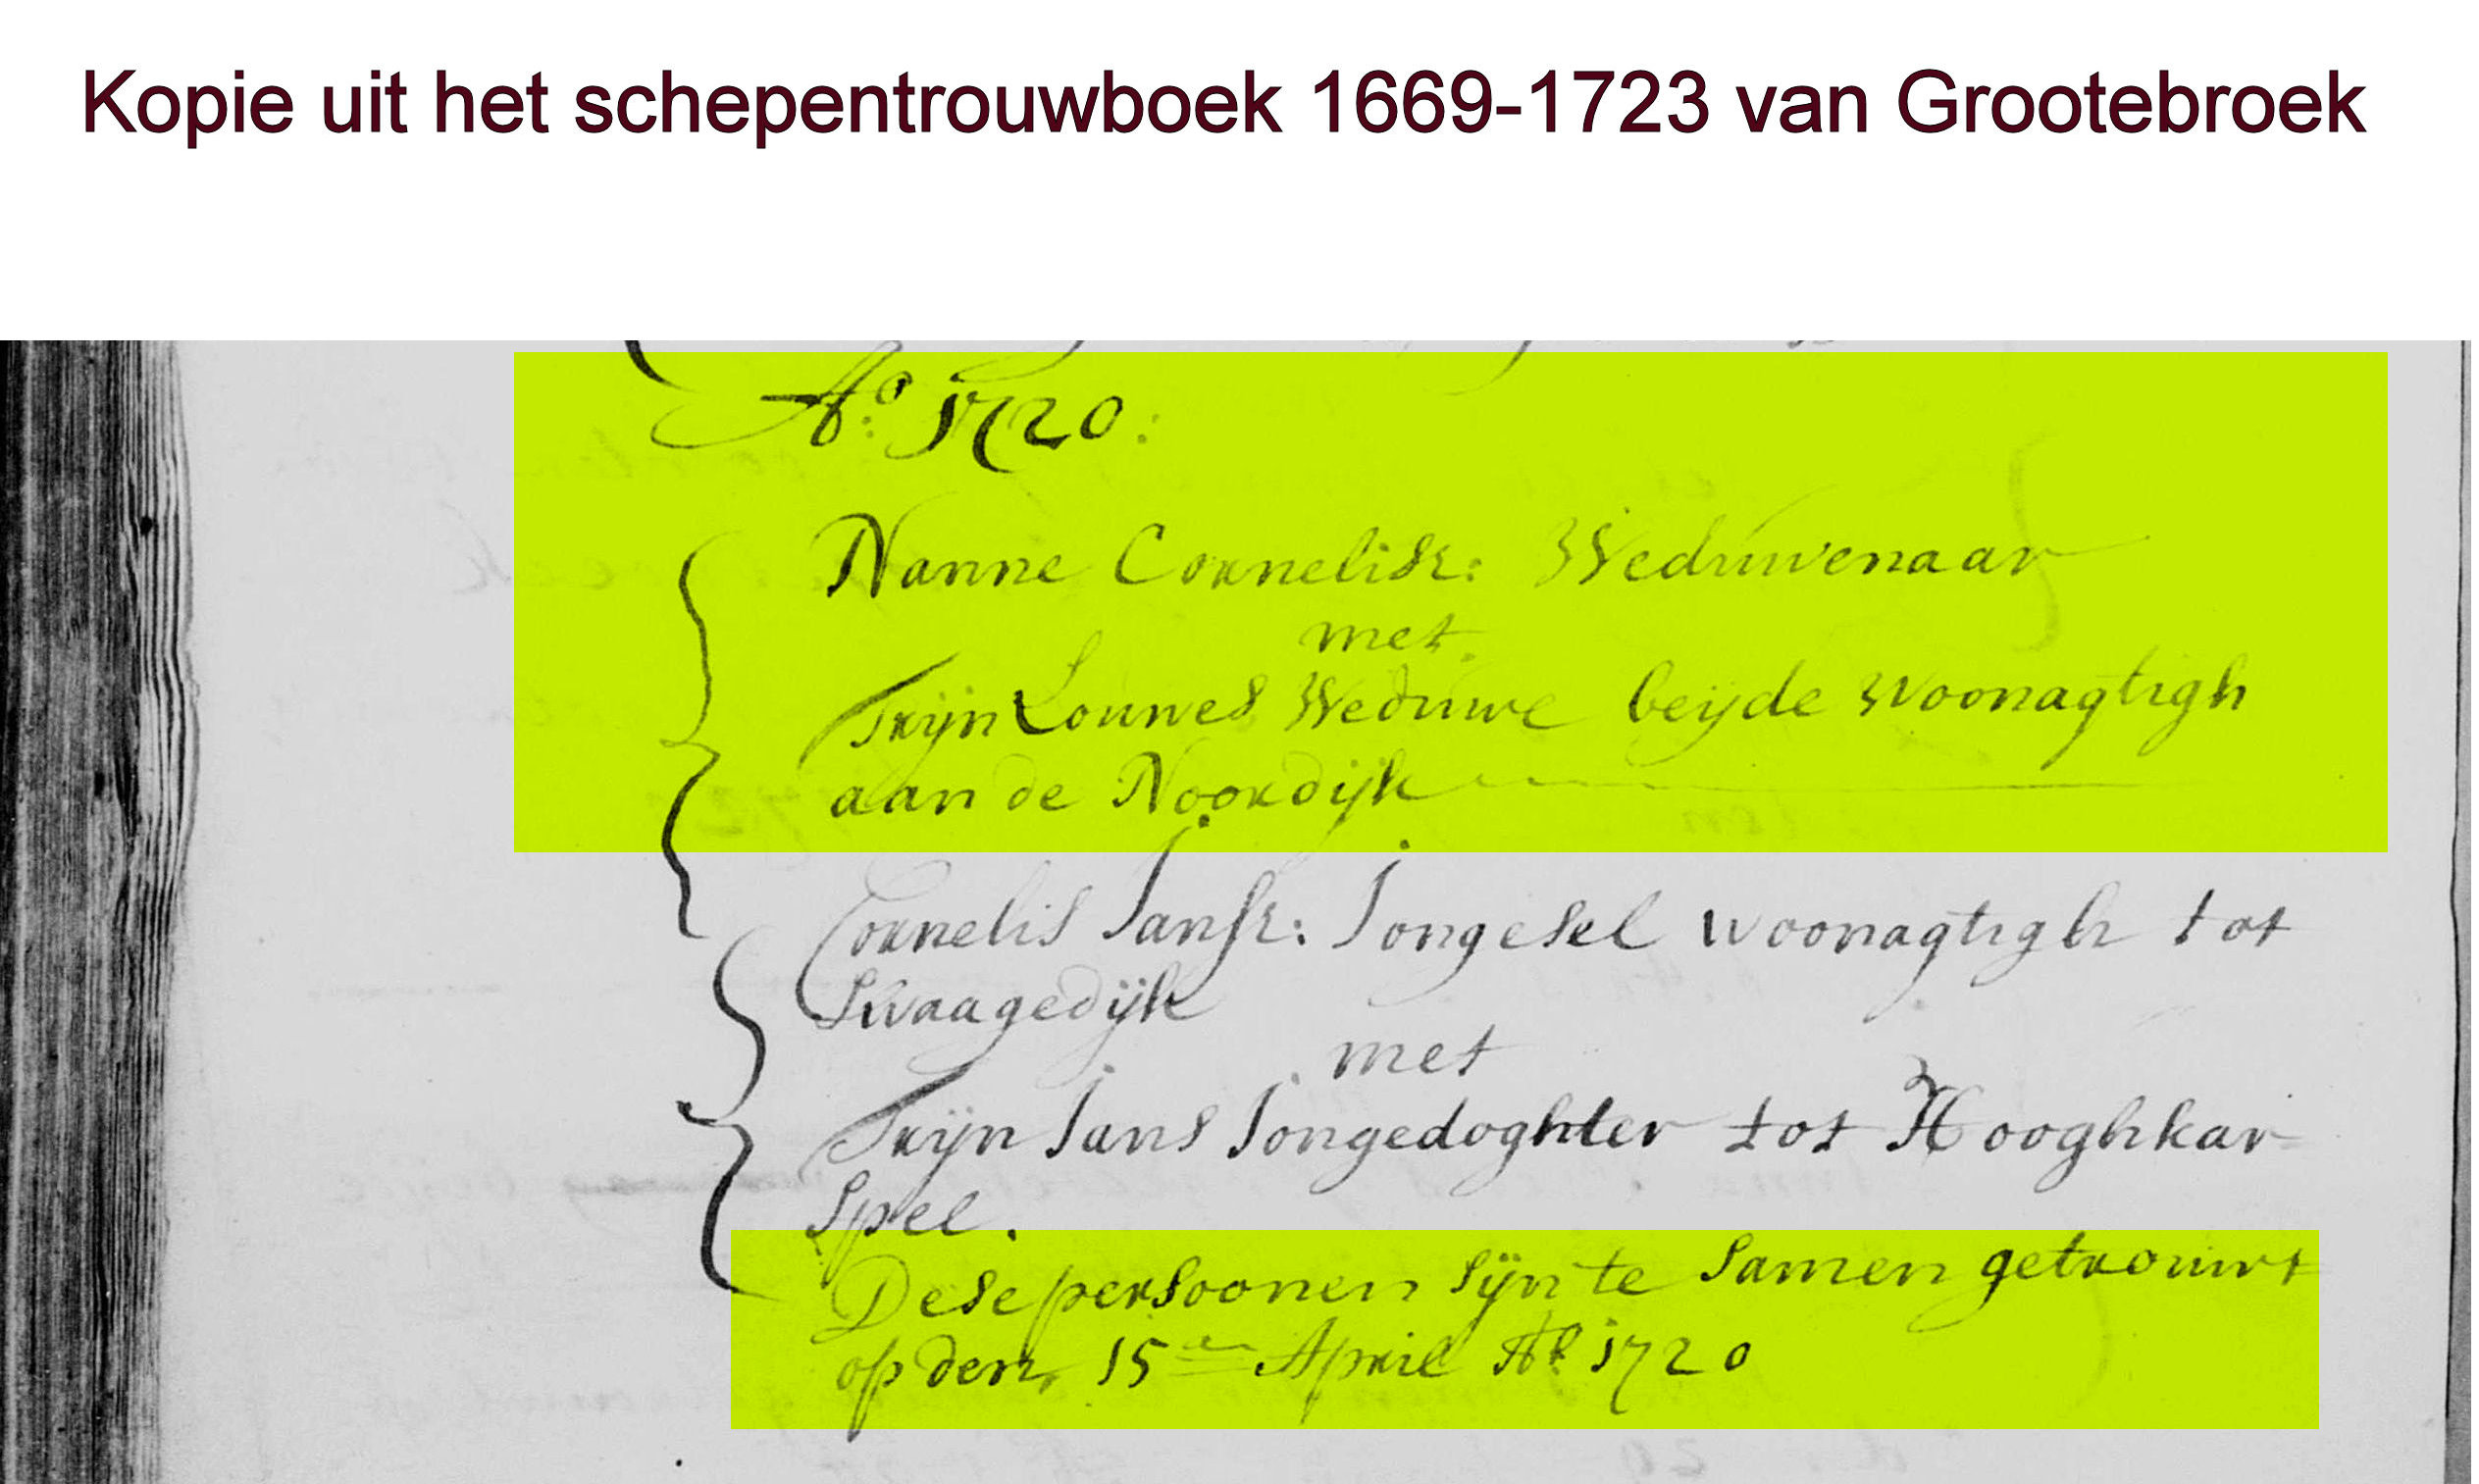 Kopie uit het schepentrouwboek 1669-1723 van Grootebroek
Ao: 1720:
Nanne Cornelisz: Weduwenaar
met
Trijn Louwes Weduwe beijde woonagtigh
aan de Noordijk
Cornelis Jansz: Jongesel woonagtigh tot
Swaagedijk
met
Trijn Jans Jongedoghter tot Hooghkar
spel.
Dese persoonen sijn te samen getrouwt
op den 15en April Ao 1720